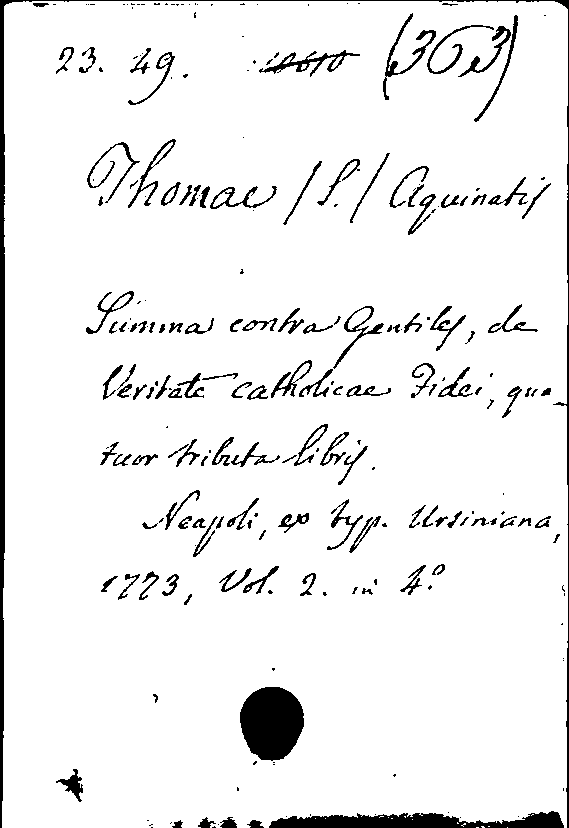 23. 49. (363)
Thomae /S./ Aquinatis
Summa contra Gentiles, de
Veritate catholicae Fidei, qua-
tuor tributa libris.
Neapoli, ex typ. Ursiniana,
1773, Vol. 2. in 4.º